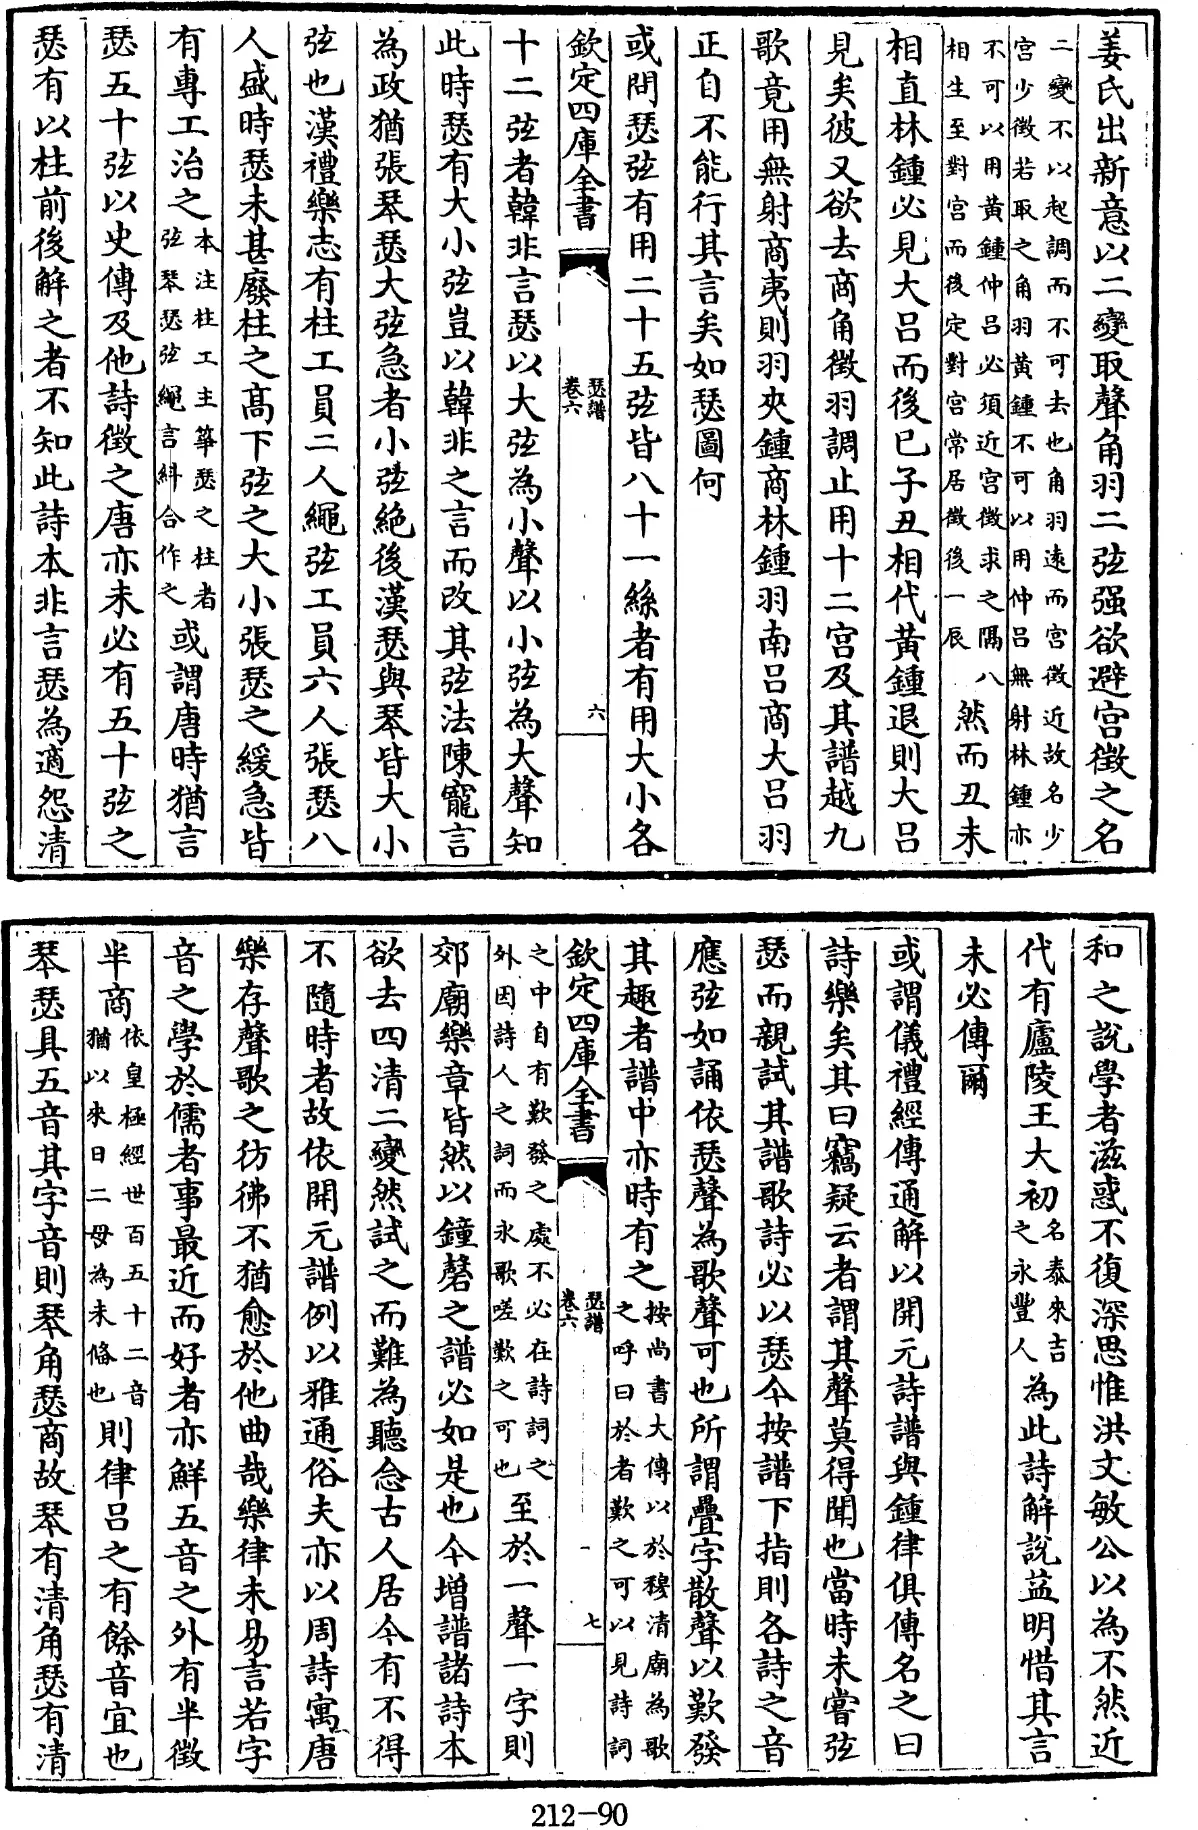 姜氏出新意以二變取聲角羽二弦强欲避宮徵之名
二變不以起調而不可去也角羽遠而宮徵近故名少
宮少徵若取之角羽黃鍾不可以用仲呂無射林鍾亦
不可以用黃鍾仲呂必須近宮徵求之隔八
相生至對宮而後定對宮常居徵後一辰
然而丑未
相直林鍾必見大呂而後已子丑相代黃鍾退則大呂
見矣彼又欲去商角徵羽調止用十二宮及其譜越九
歌竟用無射商夷則羽夾鍾商林鍾羽南呂商大呂羽
正自不能行其言矣如瑟圖何
或問瑟弦有用二十五弦皆八十一絲者有用大小各
欽定四庫全書
瑟譜
卷六
六
十二弦者韓非言瑟以大弦為小聲以小弦為大聲知
此時瑟有大小弦豈以韓非之言而改其弦法陳寵言
為政猶張琴瑟大弦急者小弦絶後漢瑟與琴皆大小
弦也漢禮樂志有柱工員二人繩弦工員六人張瑟八
人盛時瑟未甚廢柱之髙下弦之大小張瑟之緩急皆
有專工治之
本注柱工主箏瑟之柱者
弦琴瑟弦繩言糾合作之
或謂唐時猶言
瑟五十弦以史傳及他詩徵之唐亦未必有五十弦之
瑟有以柱前後解之者不知此詩本非言瑟為適怨清
和之說學者滋惑不復深思惟洪文敏公以為不然近
代有廬陵王大初
名泰來吉
之永豐人
為此詩解說益明惜其言
未必傳爾
或謂儀禮經傳通解以開元詩譜與鍾律俱傳名之曰
詩樂矣其曰竊疑云者謂其聲莫得聞也當時未嘗弦
瑟而親試其譜歌詩必以瑟今按譜下指則各詩之音
應弦如誦依瑟聲為歌聲可也所謂疊字散聲以歎發
其趣者譜中亦時有之
按尚書大傳以於穆清廟為歌
之呼曰於者歎之可以見詩詞
欽定四庫全書
瑟譜
卷六
七
之中自有歎發之處不必在詩詞之
外因詩人之詞而永歌嗟歎之可也
至於一聲一字則
郊廟樂章皆然以鐘磬之譜必如是也今增譜諸詩本
欲去四清二變然試之而難為聽念古人居今有不得
不隨時者故依開元譜例以雅通俗夫亦以周詩寓唐
樂存聲歌之彷彿不猶愈於他曲哉樂律未易言若字
音之學於儒者事最近而好者亦鮮五音之外有半徵
半商
依皇極經世百五十二音
猶以來日二母為未備也
則律呂之有餘音宜也
琴瑟具五音其字音則琴角瑟商故琴有清角瑟有清
212-90